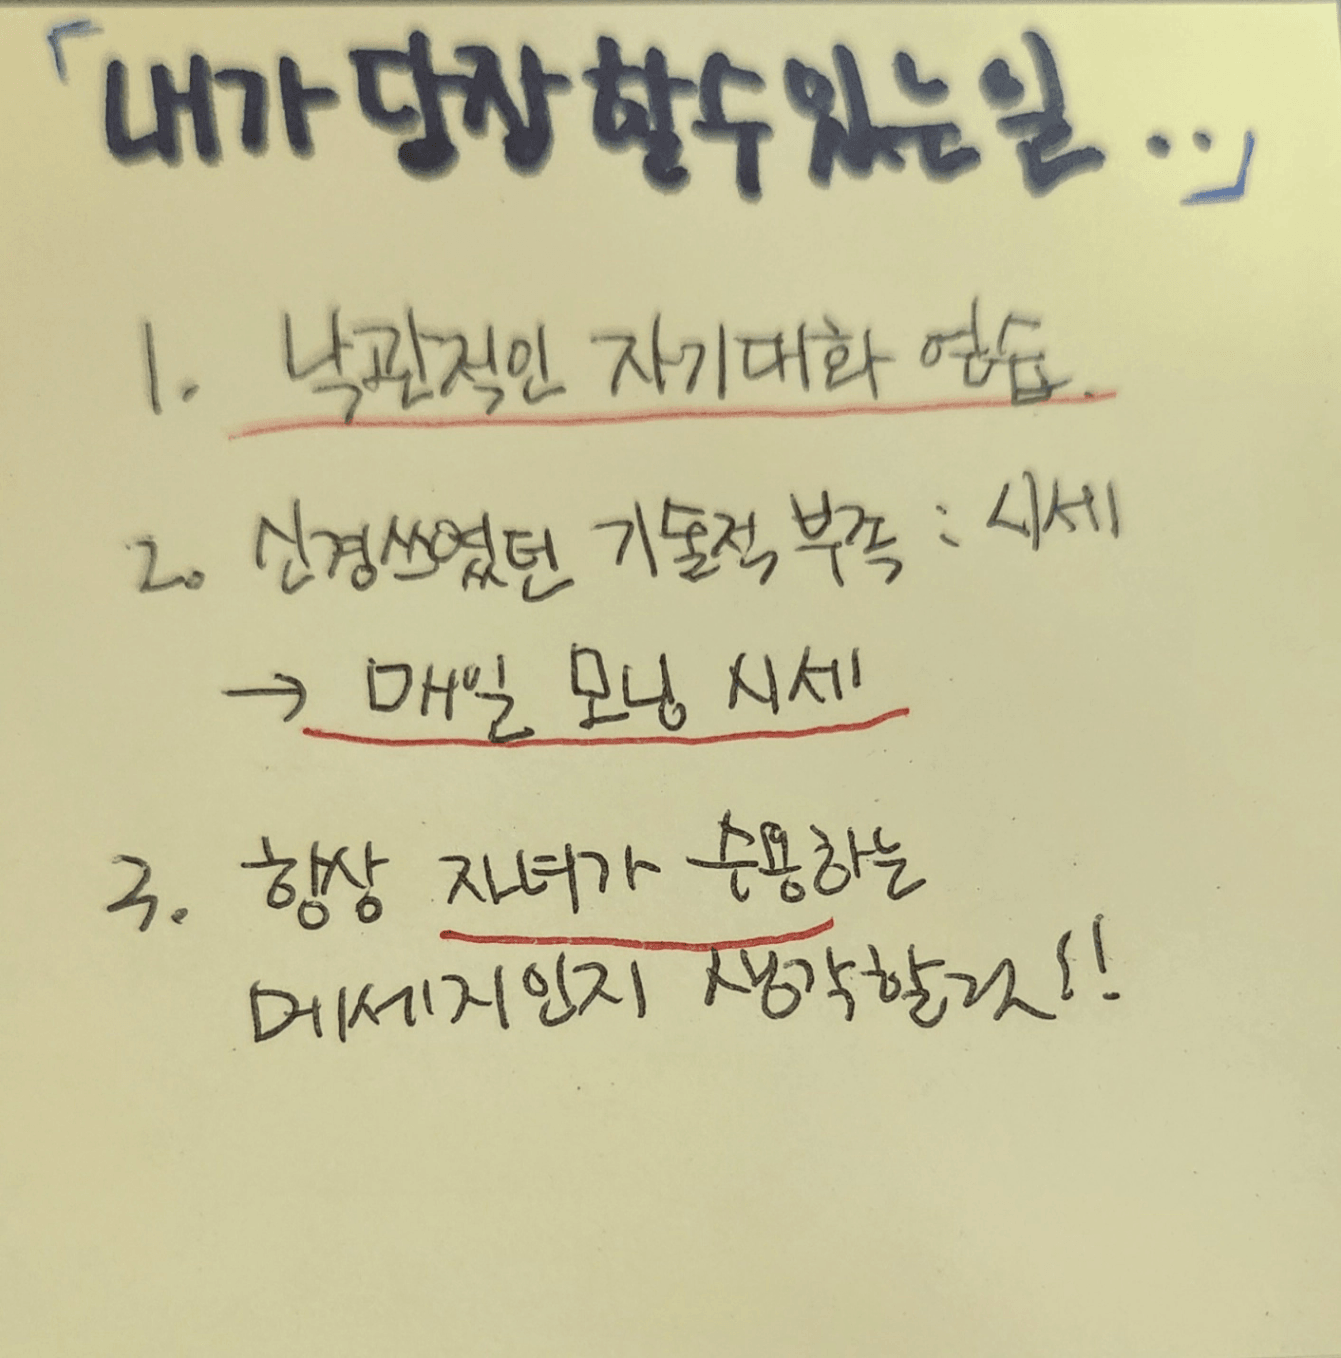 「내가 당장 할 수 있는 일..」
1. 낙관적인 자기대화 연습.
2. 신경쓰였던 기술적 부족 : 시세
→ 매일 모닝 시세
3. 항상 자녀가 수용하는
메세지인지 생각할것!!